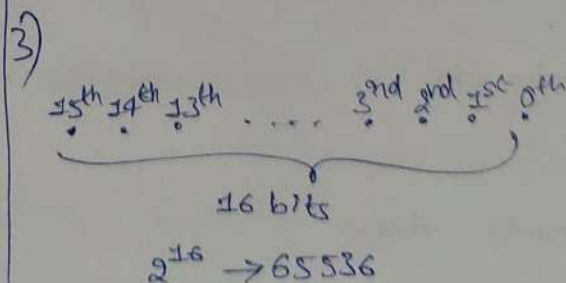 3)
15th 14th 13th ..... 3nd 2nd 1st 0th
16 bits
2^16 → 65536